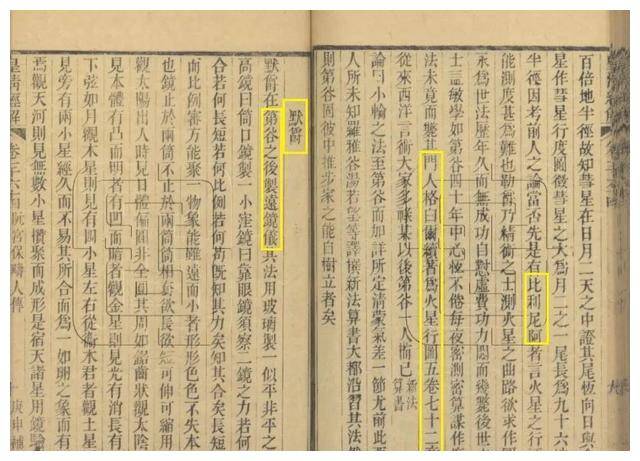 百倍地半徑故知彗星在日月二天之中證其尾恆向日與
星作彗星行度圖徵彗星之大爲月二之一尾長爲九十六
半徑因考前人之論當否先是有比利尼阿者言火星之行
能測度甚爲難也勒寄乃精術之士測火星之曲路欲求作圖
永爲世法歷年久而無成功自慰虛費功力悶而幾斃後世
士詎敏學如第谷四十年中心恆不倦每夜密測密算謀作
法未竟而斃其門人格白爾續著爲火星行圖五卷七十二
從來西洋言術大家多祿某以後第谷一人而已 新法算書
論曰小輪之法至第谷而加詳所定清蒙氣差一節尤前此西
人所未知羅雅谷湯若望等譯撰新法算書大都沿習其法
則第谷固彼中推步家之能自樹立者矣
默爵
默爵在第谷之後製遠鏡儀其法用玻璃製一似平非平之
高鏡曰筒口鏡製一小窪鏡曰靠眼鏡須察二鏡之力若何
合若何長短若何比例若何苟既知其力矣知其合矣長短
而比例審方能聚一物象能雖遠而小者形形色色不失本
也鏡止於兩筒不止於兩筒筒相套欲長欲短可伸可縮用
觀太陽出入時見日體偏圓非全圓其周如鋸齒狀觀太陰
見本體有凸而明者有凹而暗者觀金星則見光有消長有
下弦如月觀木星則見有四小星左右從衛木君者觀土星
見旁有兩小星經久而不易其所合而爲一如卵之象而有
焉觀天河則見無數小星攢聚而成形是宿天諸星用鏡驗
皇清經解 卷 阮宮保疇人傳 庚申補